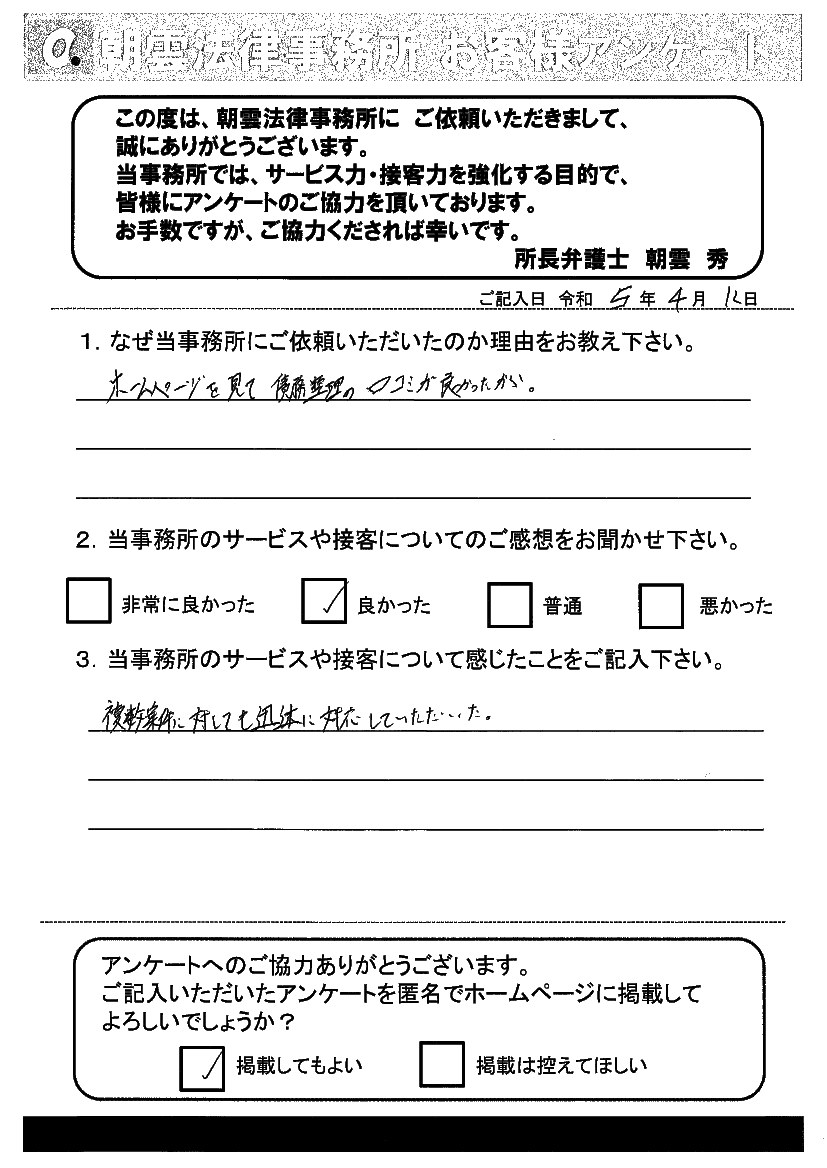 朝雲法律事務所 お客様アンケート
この度は、朝雲法律事務所に ご依頼いただきまして、
誠にありがとうございます。
当事務所では、サービス力・接客力を強化する目的で、
皆様にアンケートのご協力を頂いております。
お手数ですが、ご協力くだされば幸いです。
所長弁護士 朝雲 秀
ご記入日 令和 5 年 4 月 日
1. なぜ当事務所にご依頼いただいたのか理由をお教え下さい。
ホームページを見て 債務整理の 口コミが良かったから。
2. 当事務所のサービスや接客についてのご感想をお聞かせ下さい。
非常に良かった ✓ 良かった 普通 悪かった
3. 当事務所のサービスや接客について感じたことをご記入下さい。
複数案件に対しても に対応していただいた。
アンケートへのご協力ありがとうございます。
ご記入いただいたアンケートを匿名でホームページに掲載して
よろしいでしょうか？
✓ 掲載してもよい 掲載は控えてほしい